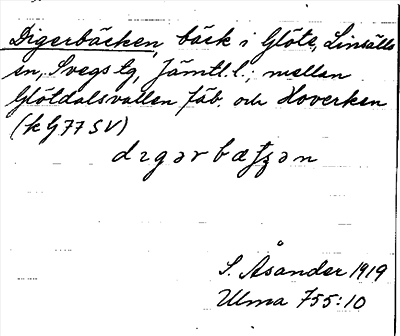 Digerbäcken, bäck i Glöte, Linsälls
sn, Svegs tg, Jämtl. l.; mellan
Glötdalsvallen fäb. och Hoverken
(k G77 SV)
S. Åsander 1919
Ulma 755:10